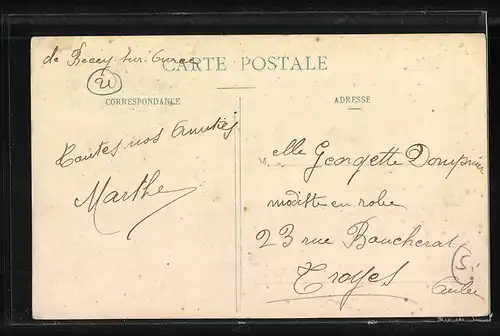 de Recey sur Ource
21
CARTE POSTALE
CORRESPONDANCE
ADRESSE
Toutes nos Amitiés
Marthe
Melle Georgette Dompnier
modiste en robe
23 rue Boucherat
Troyes
5
Aube